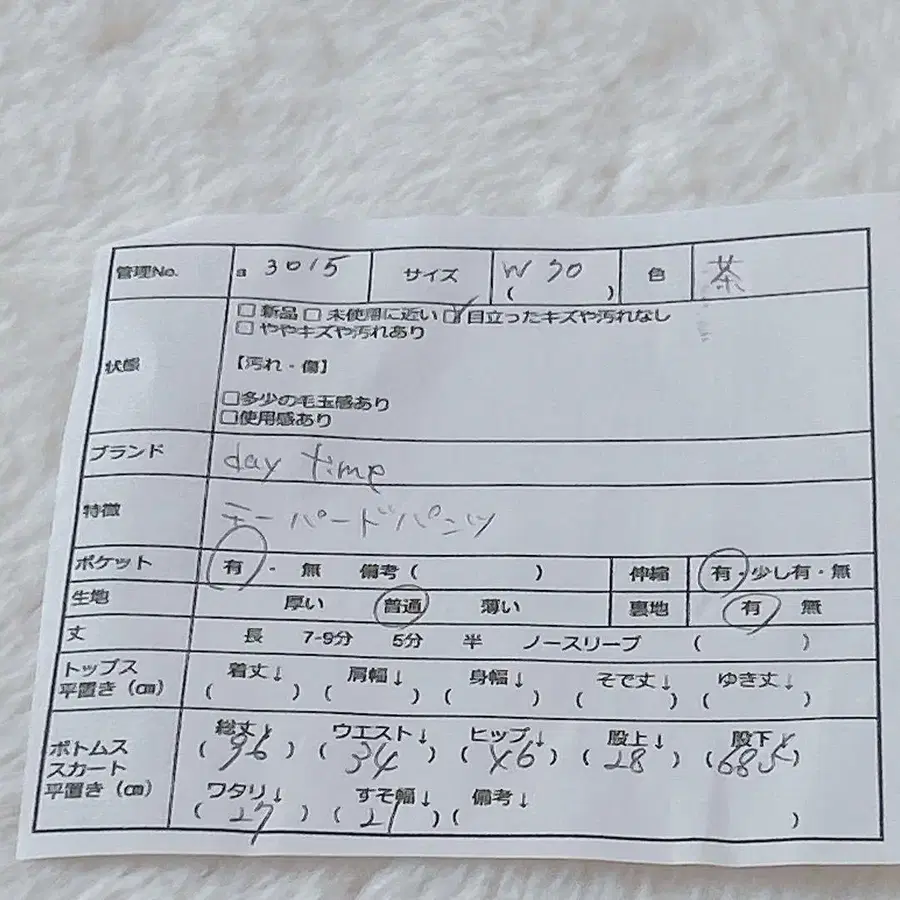 管理No. a 3015 サイズ W 70 ( ) 色 茶
状態 □ 新品 □ 未使用に近い ☑ 目立ったキズや汚れなし
□ ややキズや汚れあり
【汚れ・傷】
□多少の毛玉感あり
□使用感あり
ブランド day time
特徴 テーパードパンツ
ポケット 有・無 備考 ( ) 伸縮 有・少し有・無
生地 厚い 普通 薄い 裏地 有 無
丈 長 7-9分 5分 半 ノースリーブ ( )
トップス
平置き (㎝)
着丈↓ 肩幅↓ 身幅↓ そで丈↓ ゆき丈↓
( ) ( ) ( ) ( ) ( )
ボトムス
スカート
平置き (㎝)
総丈↓ ウエスト↓ ヒップ↓ 股上↓ 股下↓
(96) (34) (46) (28) (68.5)
ワタリ↓ すそ幅↓ 備考↓
(27) (21) ( )